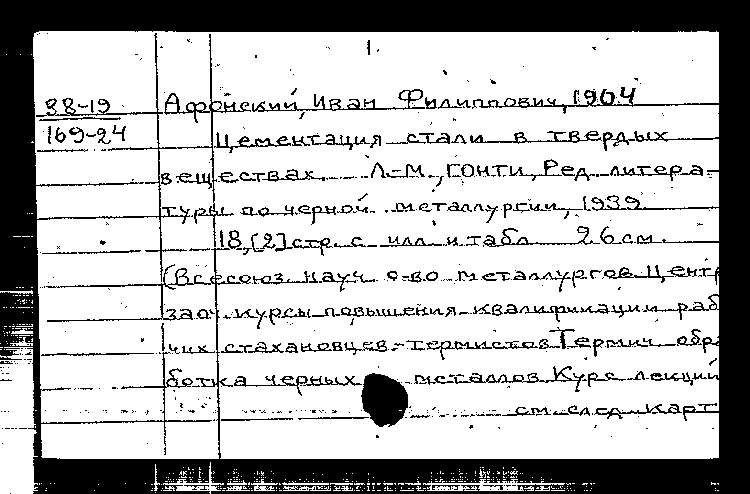 1.
38-19
169-24
Афонский, Иван Филиппович, 1904
Цементация стали в твердых
веществах. Л.-М., ГОНТИ, Ред. литера-
туры по черной металлургии, 1939
18,[2] стр. с илл и табл 26 см.
(Всесоюз. науч о-во металлургов Центр
заоч. курсы повышения квалификации раб
чих стахановцев-термистов Термич обра
ботка черных металлов. Курс лекций
см. след. карт